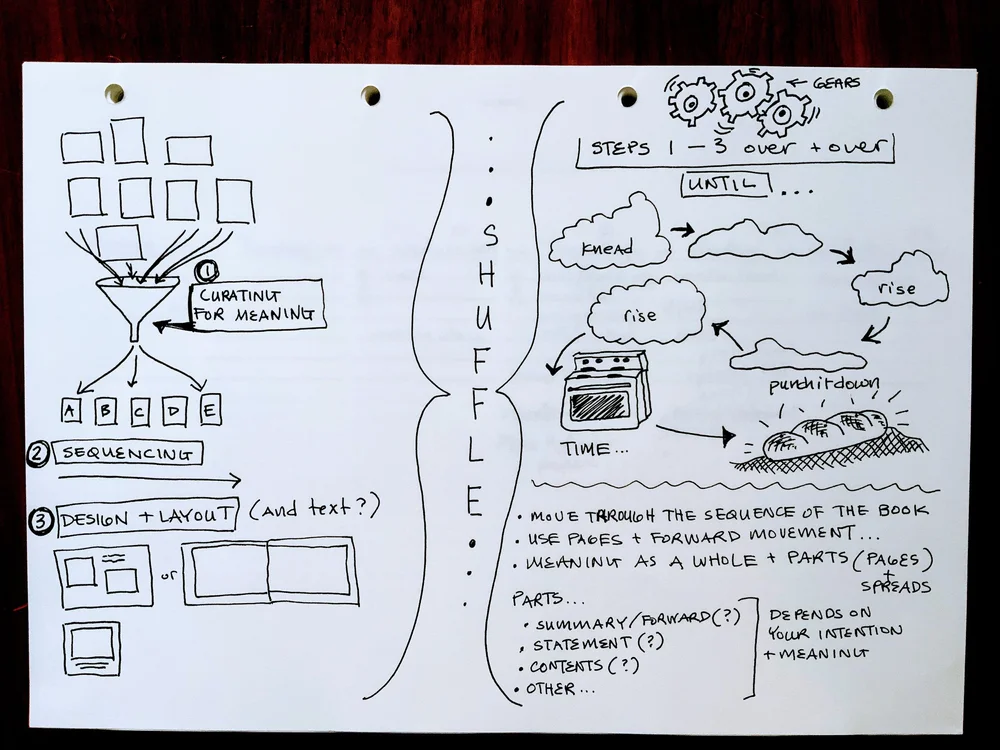 1
CURATING
FOR MEANING
A B C D E
2 SEQUENCING
3 DESIGN + LAYOUT (and text?)
or
SHUFFLE
← GEARS
STEPS 1 – 3 over + over
UNTIL ...
knead
rise
rise
punch it down
TIME...
• MOVE THROUGH THE SEQUENCE OF THE BOOK
• USE PAGES + FORWARD MOVEMENT...
• MEANING AS A WHOLE + PARTS (PAGES)
+
SPREADS
PARTS...
• SUMMARY/FORWARD(?)
• STATEMENT (?)
• CONTENTS (?)
• OTHER...
DEPENDS ON
YOUR INTENTION
+ MEANING